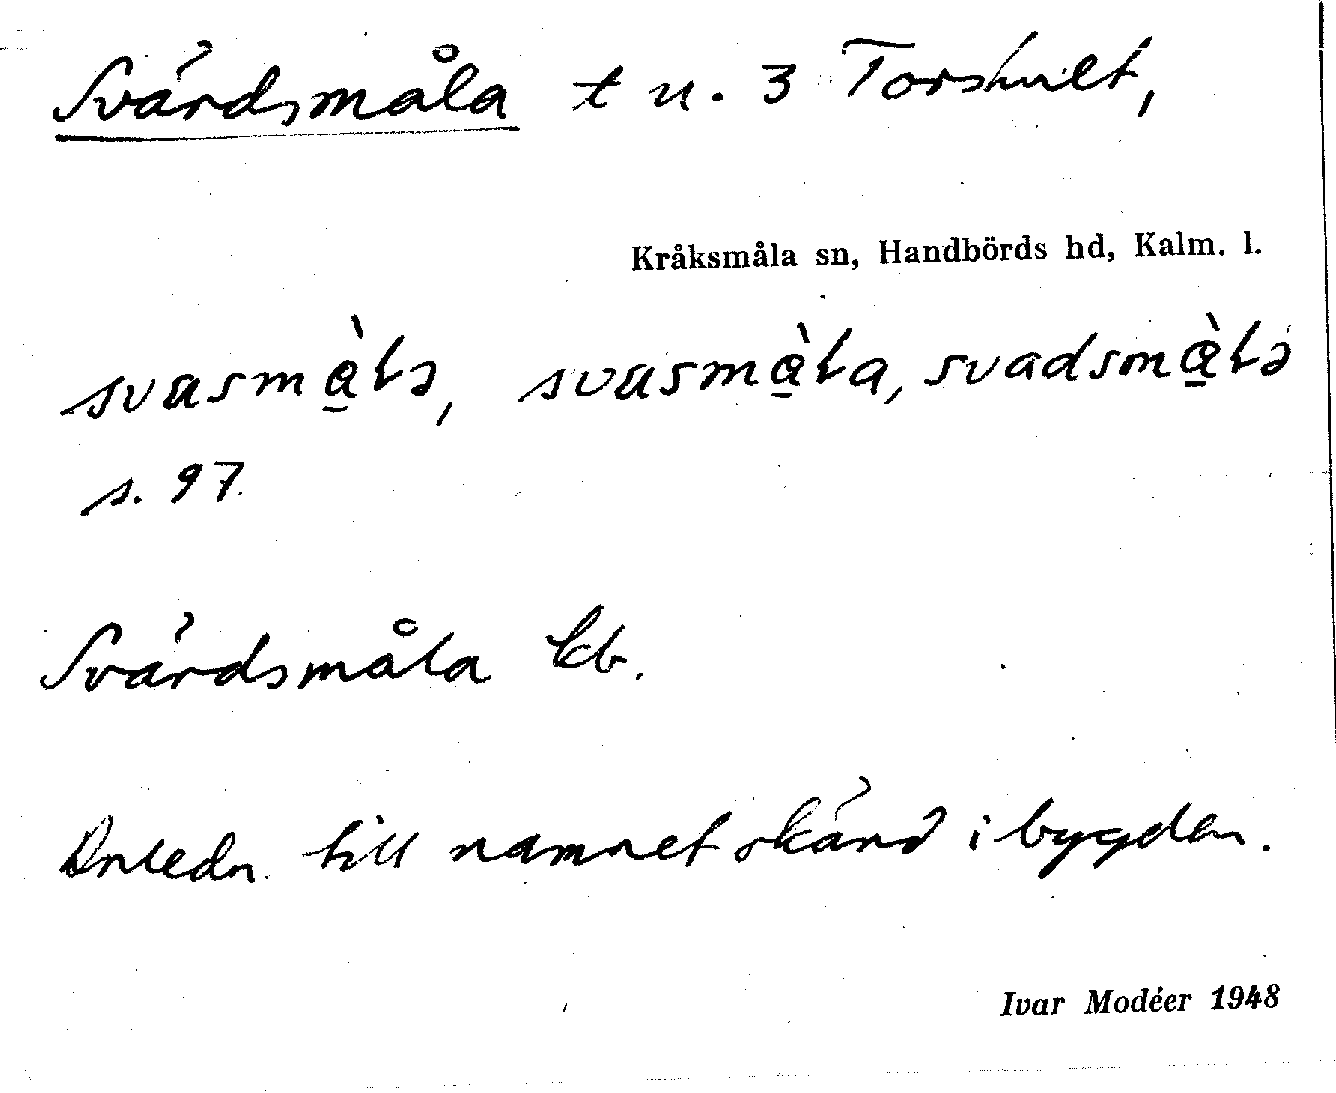 Svärdsmåla t u. 3 Torshult,
Kråksmåla sn, Handbörds hd, Kalm. l.
svasmà̱lə, svasmà̱la, svadsmà̱lə
s. 97
Svärdsmåla Eb.
Anledn. till namnet okänd i bygden.
Ivar Modéer 1948